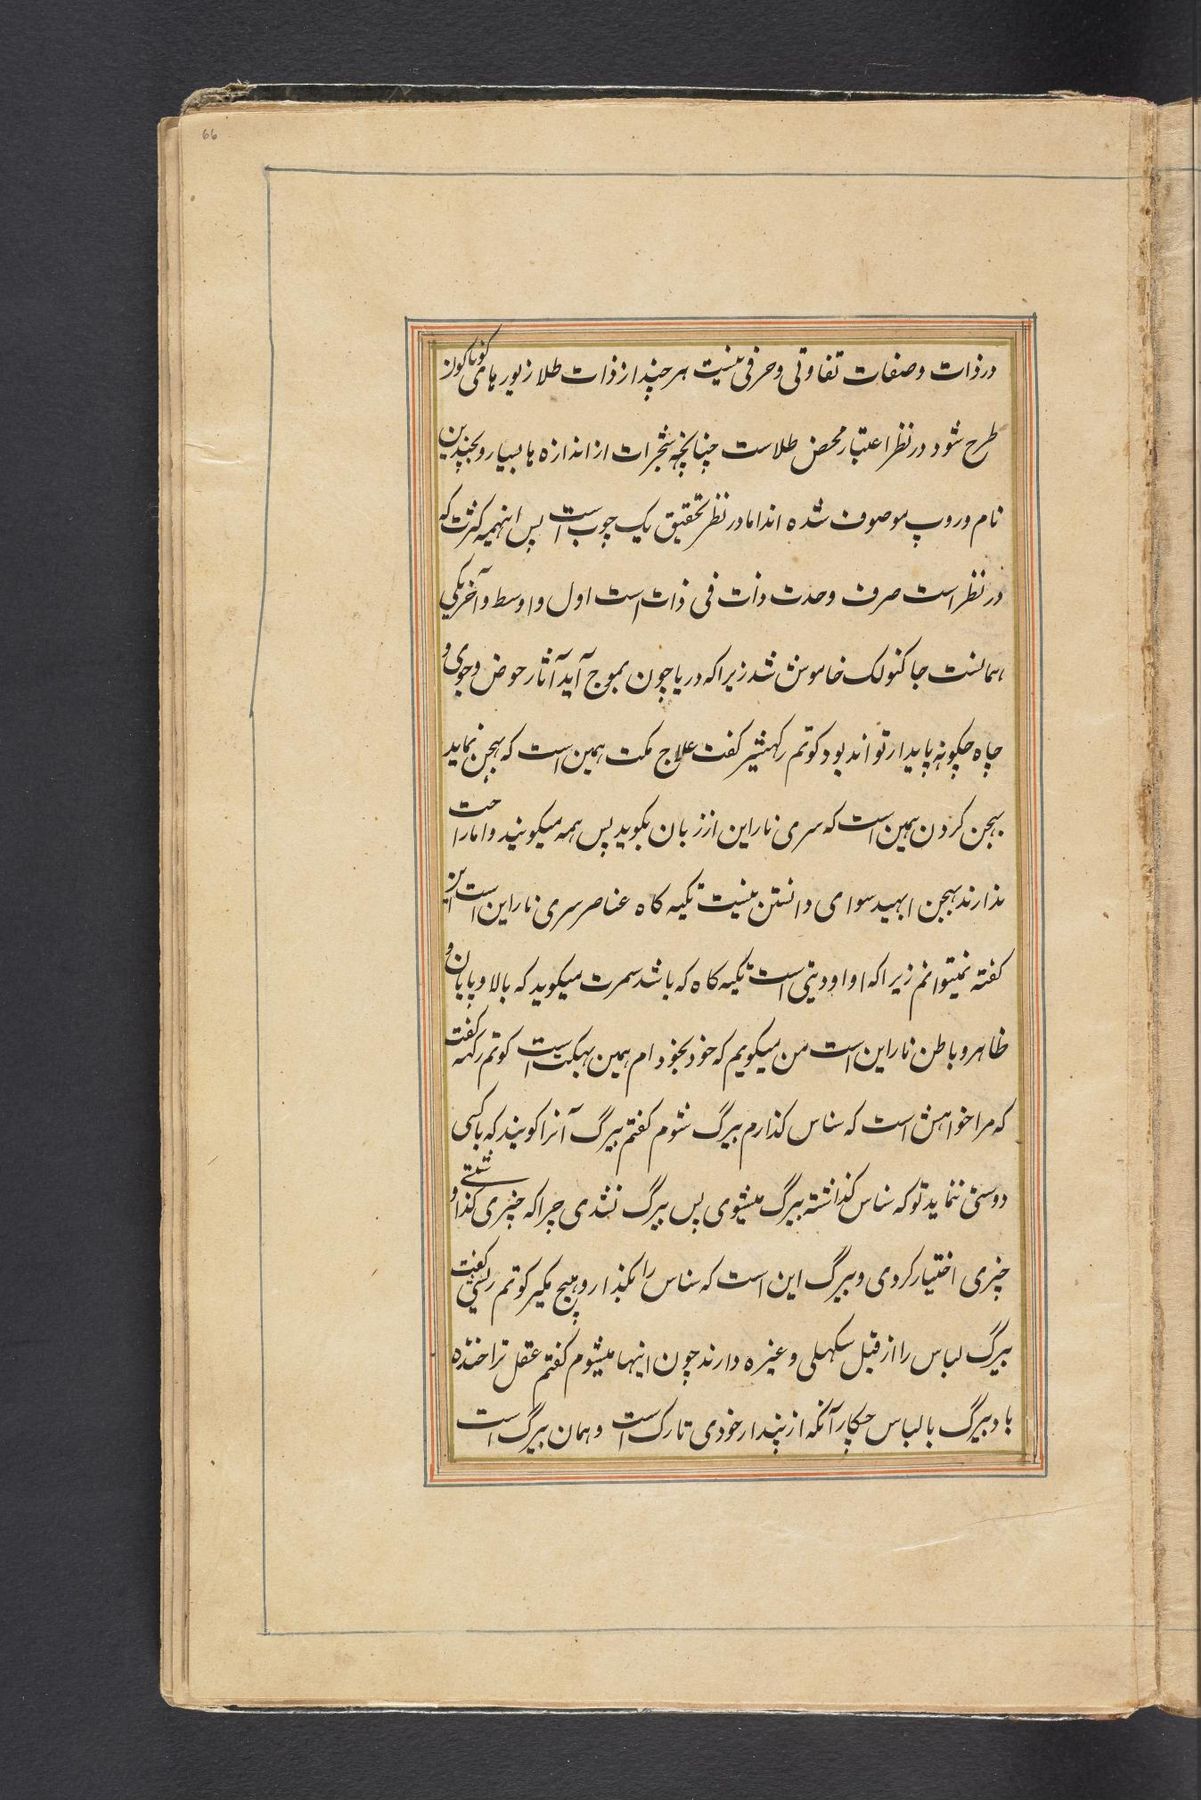 66
در ذات و صفات تفاوتی و حرفی نیست هر چند از ذات طلا زیورهای کوناکون
طرح شود در نظر اعتبار محض طلاست چنانچه شجرات از اندازه ها بسیار و بچندین
نام و روپ موصوف شده اند اما در نظر تحقیق یک چوب است پس اینهمه کثرت که
در نظر است صرف وحدت ذات فی ذات است اول و اوسط و آخر یکی
همانست جا کنولک خاموش شد زیرا که دریا چون بموج آید آثار حوض و جوی و
چاه چکونه پایدار تواند بود کوتم رکهیشر کفت علاج مکت همین است که بهجن نماید
بهجن کردن همین است که سری ناراین از زبان بکوید پس همه میکویند و اما راحت
ندارند بهجن ابهید سوای دانستن نیست تکیه کاه عناصر سری ناراین است این
کفته نمیتوانم زیرا که او اودیتی است تکیه کاه که باشد سمرت میکوید که بالا و پایان و
ظاهر و باطن ناراین است من میکویم که خود بخود ام همین بهکت است کوتم رکهه کفت
که مرا خواهش است که سناس کذارم بیرگ شوم کفتم بیرگ آنرا کویند که با کسی
دوستی ننماید تو که سناس کذاشته بیرگ میشوی پس بیرگ نشدی چرا که چیزی کذاشتی و
چیزی اختیار کردی و بیرگ این است که سناس را بکذار و هیچ مکیر کوتم رکهی کفت
بیرگ لباس را از قبل سکهلی و غیره دارند چون اینها میشوم کفتم عقل ترا خنده
باد بیرگ با لباس چکار آنکه از پندار خودی تارک است و همان بیرگ است